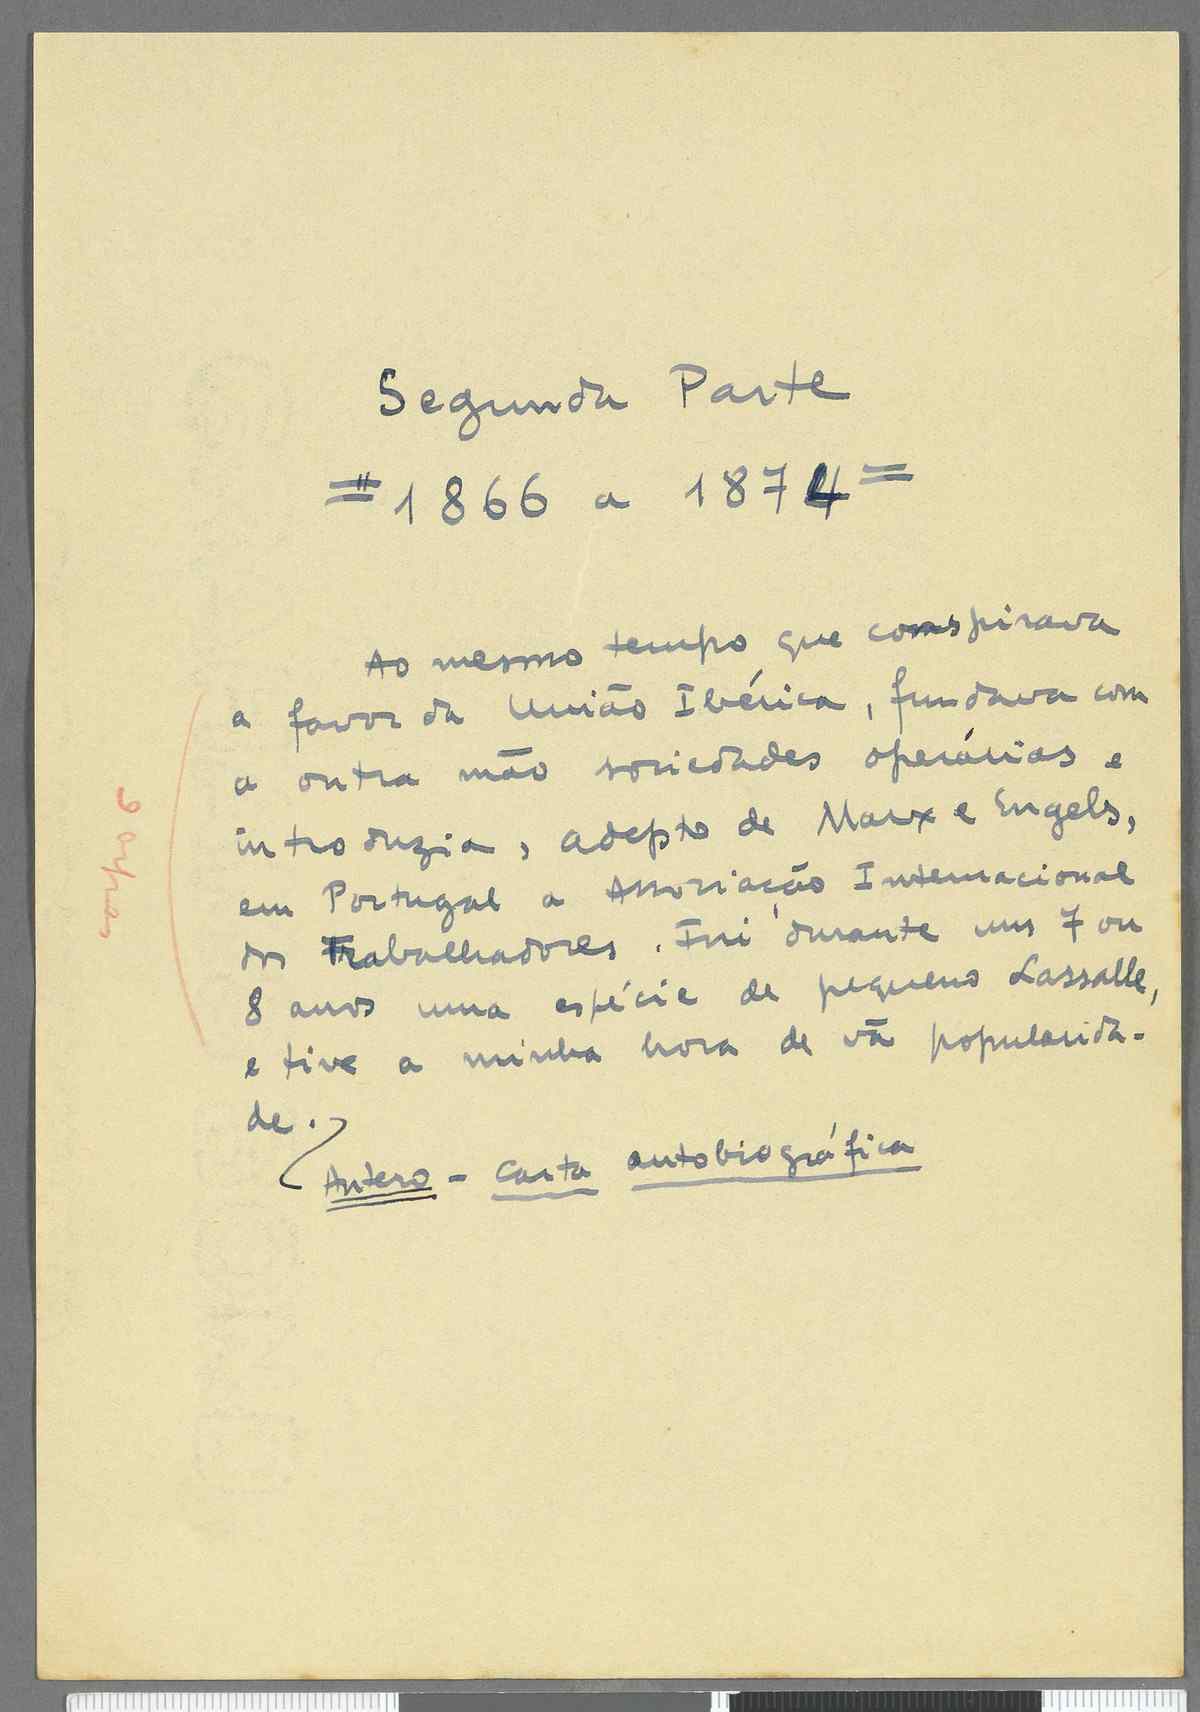 Segunda Parte
= 1866 a 1874 =
Ao mesmo tempo que conspirava
a favor da União Ibérica, fundava com
a outra mão sociedades operárias e
introduzia, adepto de Marx e Engels,
em Portugal a Associação Internacional
dos Trabalhadores. Fui durante uns 7 ou
8 anos uma espécie de pequeno Lassalle,
e tive a minha hora de vã popularida-
de.
Antero - Carta autobiográfica